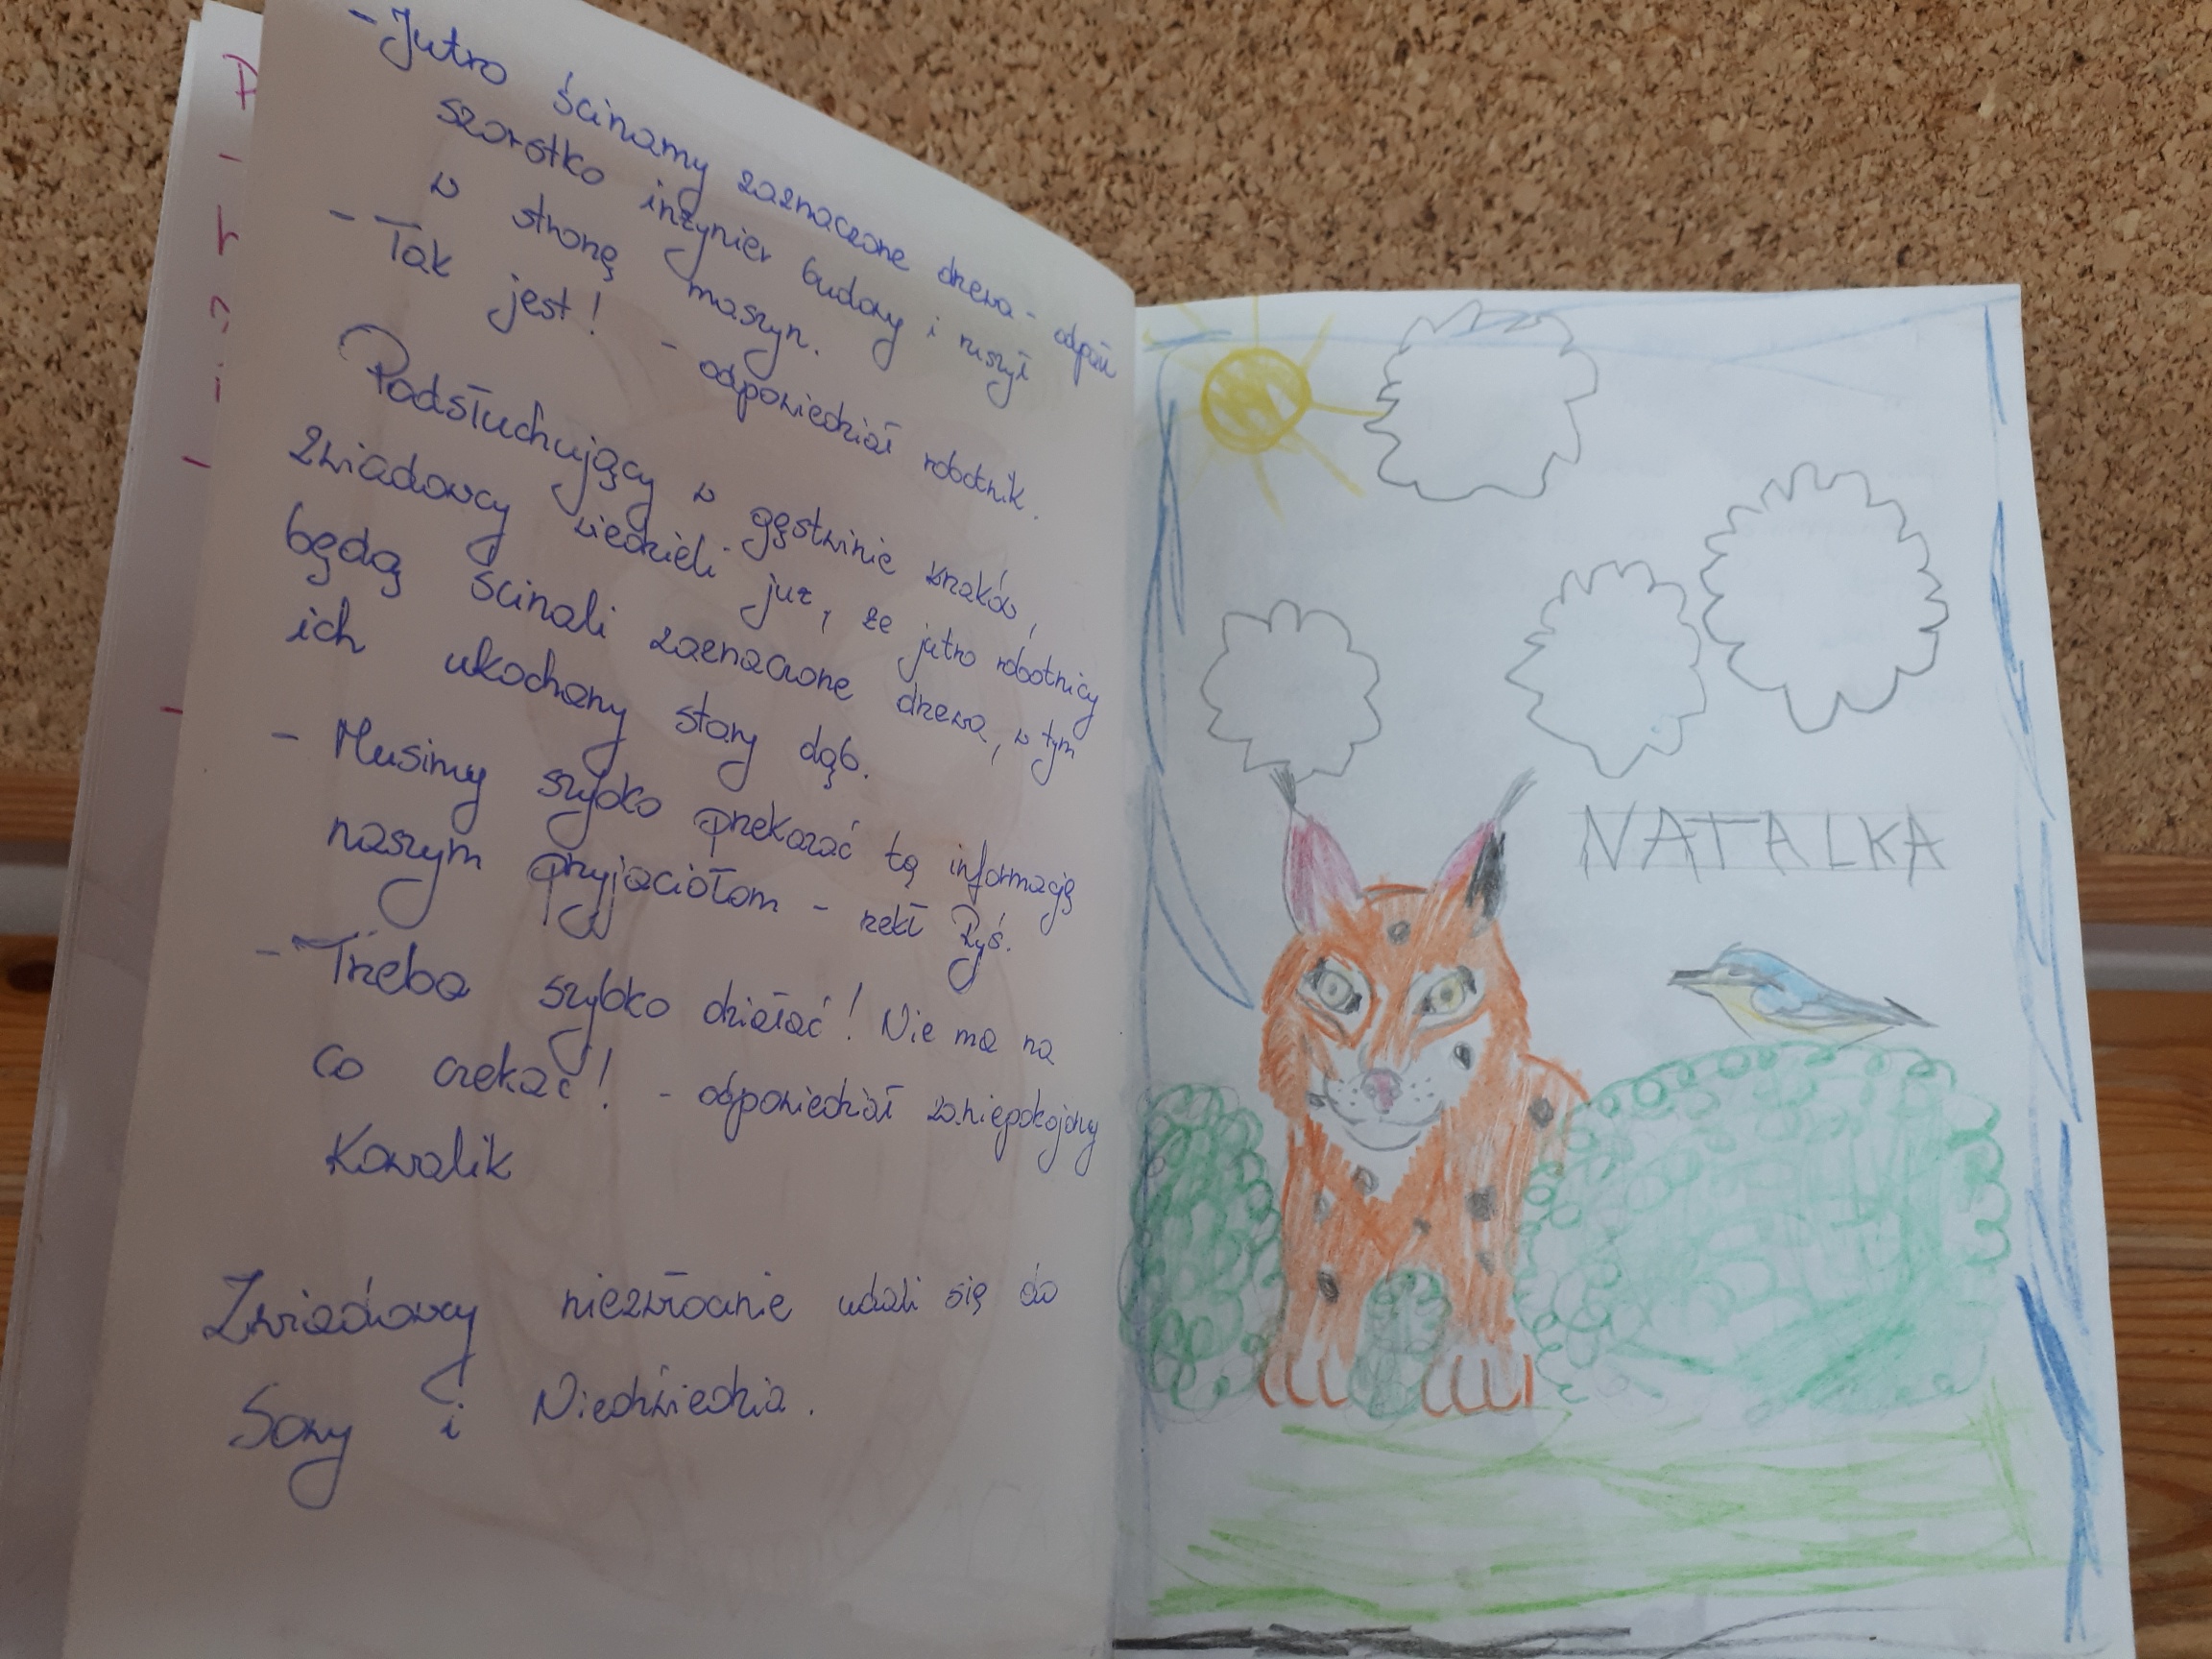 - Jutro ścinamy zaznaczone drzewa - odparł
szorstko inżynier budowy i ruszył
w stronę maszyn.
- Tak jest! - odpowiedział robotnik.
Podsłuchujący w gęstwinie krzaków,
zwiadowcy wiedzieli już, że jutro robotnicy
będą ścinali zaznaczone drzewa, w tym
ich ukochany stary dąb.
- Musimy szybko przekazać tą informację
naszym przyjaciołom - rzekł Ryś.
- Trzeba szybko działać! Nie ma na
co czekać! - odpowiedział zaniepokojony
Kowalik
Zwiadowcy niezwłocznie udali się do
Sowy i Niedźwiedzia.
NATALKA